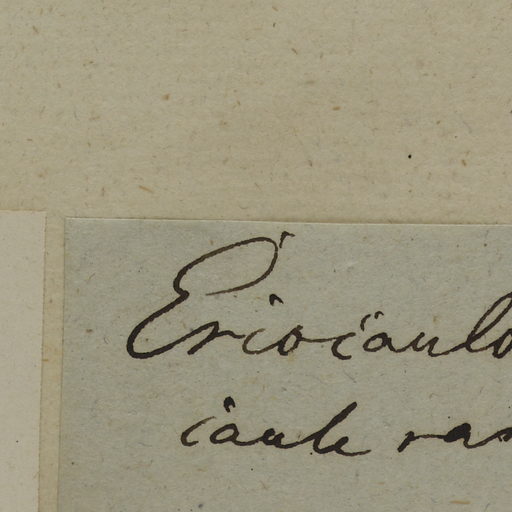 Eriocaulo
caule ram